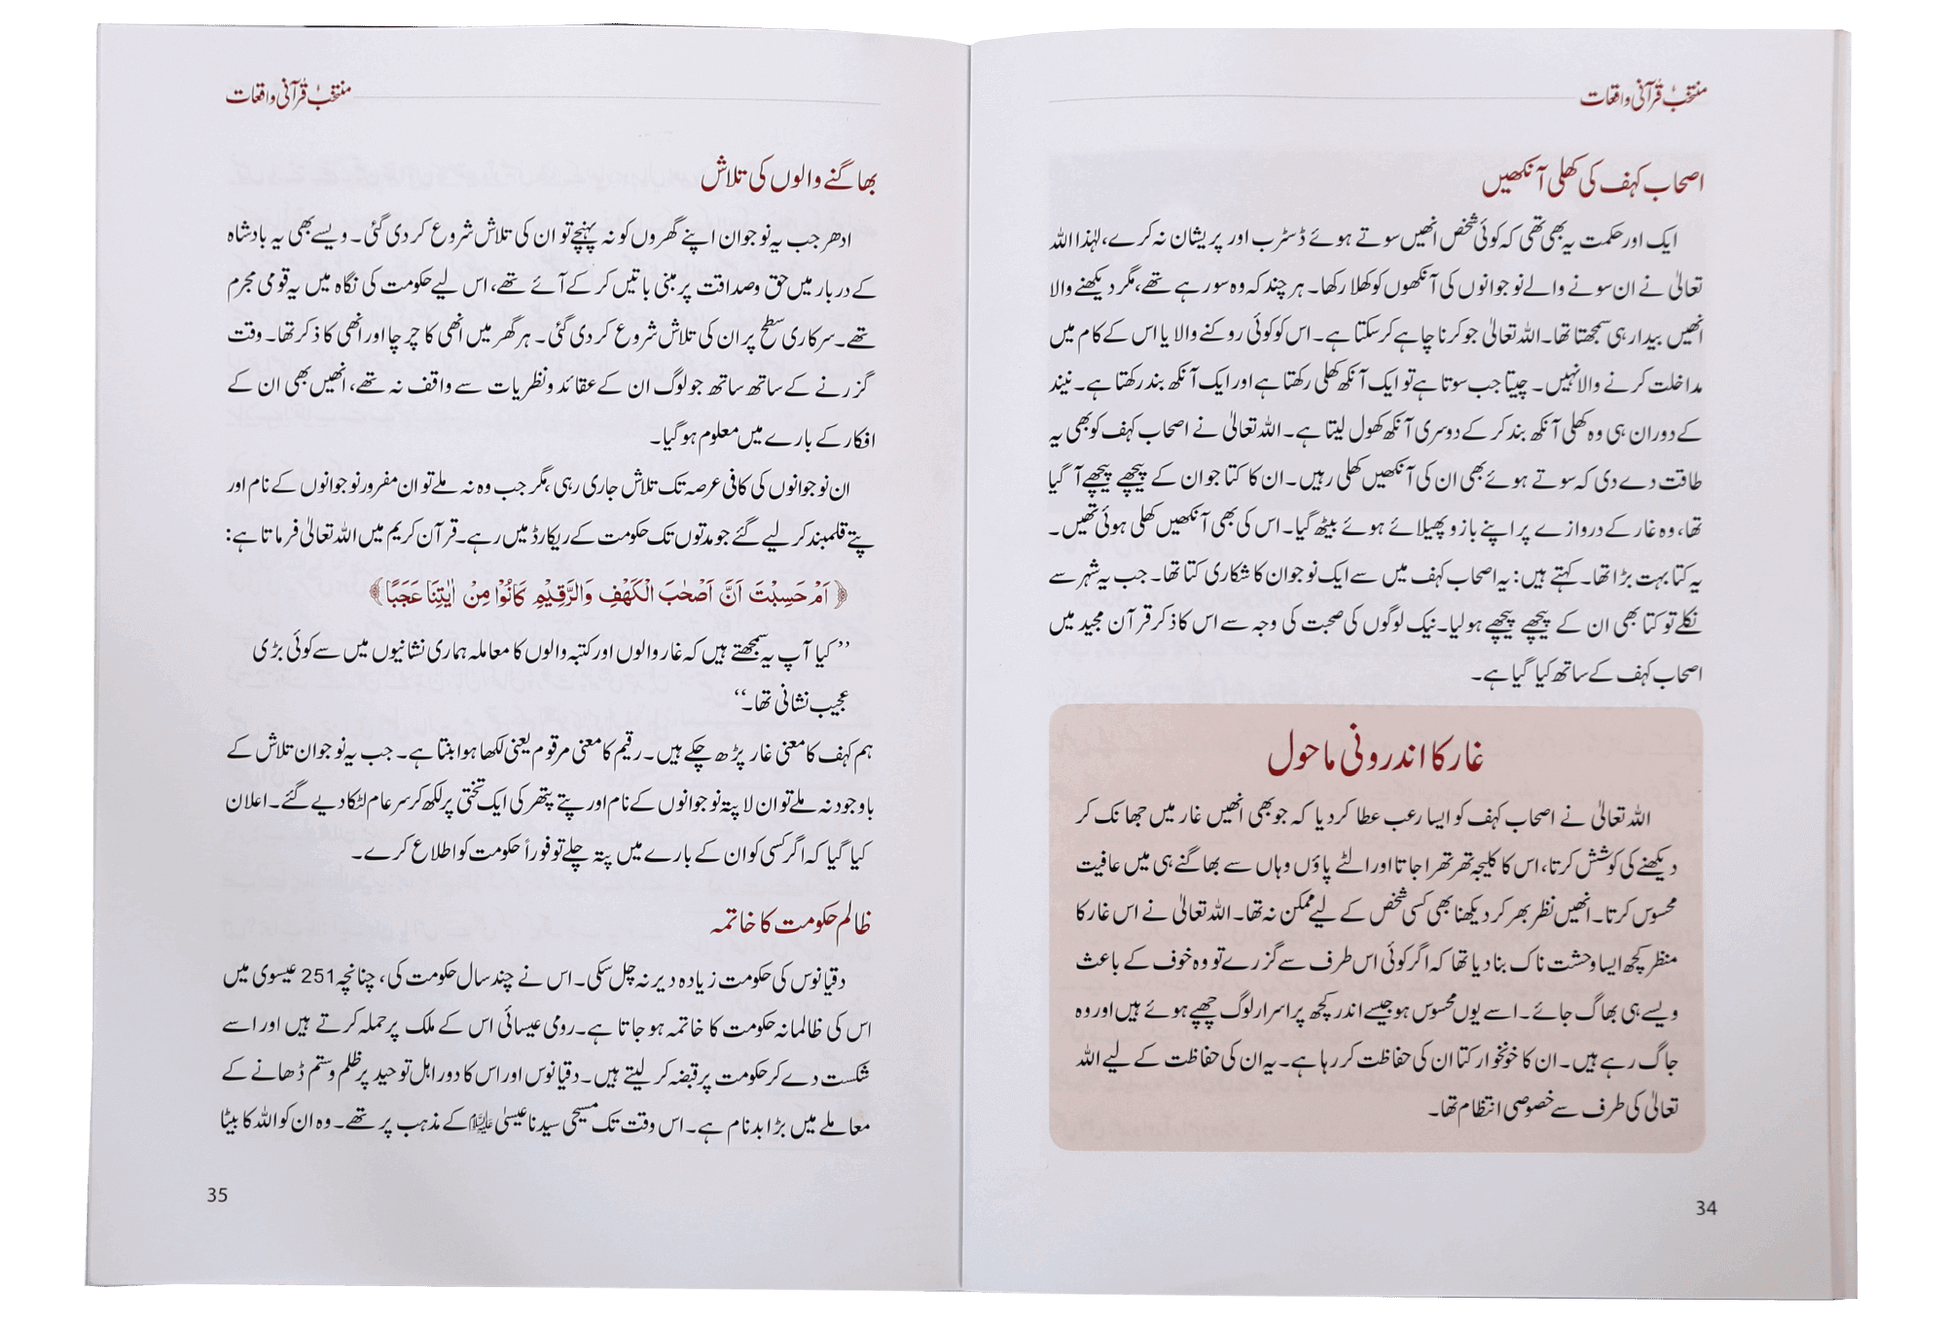 منتخب قرآنی واقعات
اصحاب کہف کی کھلی آنکھیں
ایک اور حکمت یہ بھی تھی کہ کوئی شخص انھیں سوتے ہوئے ڈسٹرب اور پریشان نہ کرے، لہٰذا اللہ
تعالیٰ نے ان سونے والے نوجوانوں کی آنکھوں کو کھلا رکھا۔ ہر چند کہ وہ سو رہے تھے، مگر دیکھنے والا
انھیں بیدار ہی سمجھتا تھا۔ اللہ تعالیٰ جو کرنا چاہے کر سکتا ہے۔ اس کو کوئی روکنے والا یا اس کے کام میں
مداخلت کرنے والا نہیں۔ چیتا جب سوتا ہے تو ایک آنکھ کھلی رکھتا ہے اور ایک آنکھ بند رکھتا ہے۔ نیند
کے دوران ہی وہ کھلی آنکھ بند کر کے دوسری آنکھ کھول لیتا ہے۔ اللہ تعالیٰ نے اصحاب کہف کو بھی یہ
طاقت دے دی کہ سوتے ہوئے بھی ان کی آنکھیں کھلی رہیں۔ ان کا کتا جو ان کے پیچھے پیچھے آ گیا
تھا، وہ غار کے دروازے پر اپنے بازو پھیلائے ہوئے بیٹھ گیا۔ اس کی بھی آنکھیں کھلی ہوئی تھیں۔
یہ کتا بہت بڑا تھا۔ کہتے ہیں: یہ اصحاب کہف میں سے ایک نوجوان کا شکاری کتا تھا۔ جب یہ شہر سے
نکلے تو کتا بھی ان کے پیچھے پیچھے ہولیا۔ نیک لوگوں کی صحبت کی وجہ سے اس کا ذکر قرآن مجید میں
اصحاب کہف کے ساتھ کیا گیا ہے۔
غار کا اندرونی ماحول
اللہ تعالیٰ نے اصحاب کہف کو ایسا رعب عطا کر دیا کہ جو بھی انھیں غار میں جھانک کر
دیکھنے کی کوشش کرتا، اس کا کلیجہ تھرتھرا جاتا اور الٹے پاؤں وہاں سے بھاگنے ہی میں عافیت
محسوس کرتا۔ انھیں نظر بھر کر دیکھنا بھی کسی شخص کے لیے ممکن نہ تھا۔ اللہ تعالیٰ نے اس غار کا
منظر کچھ ایسا وحشت ناک بنا دیا تھا کہ اگر کوئی اس طرف سے گزرے تو وہ خوف کے باعث
ویسے ہی بھاگ جائے۔ اسے یوں محسوس ہو جیسے اندر کچھ پراسرار لوگ چھپے ہوئے ہیں اور وہ
جاگ رہے ہیں۔ ان کا خونخوار کتا ان کی حفاظت کر رہا ہے۔ یہ ان کی حفاظت کے لیے اللہ
تعالیٰ کی طرف سے خصوصی انتظام تھا۔
34
منتخب قرآنی واقعات
بھاگنے والوں کی تلاش
ادھر جب یہ نوجوان اپنے گھروں کو نہ پہنچے تو ان کی تلاش شروع کر دی گئی۔ ویسے بھی یہ بادشاہ
کے دربار میں حق و صداقت پر مبنی باتیں کر کے آئے تھے، اس لیے حکومت کی نگاہ میں یہ قومی مجرم
تھے۔ سرکاری سطح پر ان کی تلاش شروع کر دی گئی۔ ہر گھر میں انھی کا چرچا اور انھی کا ذکر تھا۔ وقت
گزرنے کے ساتھ ساتھ جو لوگ ان کے عقائد و نظریات سے واقف نہ تھے، انھیں بھی ان کے
افکار کے بارے میں معلوم ہو گیا۔
ان نوجوانوں کی کافی عرصہ تک تلاش جاری رہی، مگر جب وہ نہ ملے تو ان مفرور نوجوانوں کے نام اور
پتے قلمبند کر لیے گئے جو مدتوں تک حکومت کے ریکارڈ میں رہے۔ قرآن کریم میں اللہ تعالیٰ فرماتا ہے:
﴿اَمْ حَسِبْتَ اَنَّ اَصْحٰبَ الْكَهْفِ وَالرَّقِيْمِ كَانُوْا مِنْ اٰيٰتِنَا عَجَبًا﴾
’’کیا آپ یہ سمجھتے ہیں کہ غار والوں اور کتبہ والوں کا معاملہ ہماری نشانیوں میں سے کوئی بڑی
عجیب نشانی تھا۔‘‘
ہم کہف کا معنی غار پڑھ چکے ہیں۔ رقیم کا معنی مرقوم یعنی لکھا ہوا بنتا ہے۔ جب یہ نوجوان تلاش کے
باوجود نہ ملے تو ان لاپتہ نوجوانوں کے نام اور پتے پتھر کی ایک تختی پر لکھ کر سرعام لٹکا دیے گئے۔ اعلان
کیا گیا کہ اگر کسی کو ان کے بارے میں پتہ چلے تو فوراً حکومت کو اطلاع کرے۔
ظالم حکومت کا خاتمہ
دقیانوس کی حکومت زیادہ دیر نہ چل سکی۔ اس نے چند سال حکومت کی، چنانچہ 251 عیسوی میں
اس کی ظالمانہ حکومت کا خاتمہ ہو جاتا ہے۔ رومی عیسائی اس کے ملک پر حملہ کرتے ہیں اور اسے
شکست دے کر حکومت پر قبضہ کر لیتے ہیں۔ دقیانوس اور اس کا دور اہل توحید پر ظلم و ستم ڈھانے کے
معاملے میں بڑا بدنام ہے۔ اس وقت تک مسیحی سیدنا عیسیٰ علیہ السلام کے مذہب پر تھے۔ وہ ان کو اللہ کا بیٹا
35